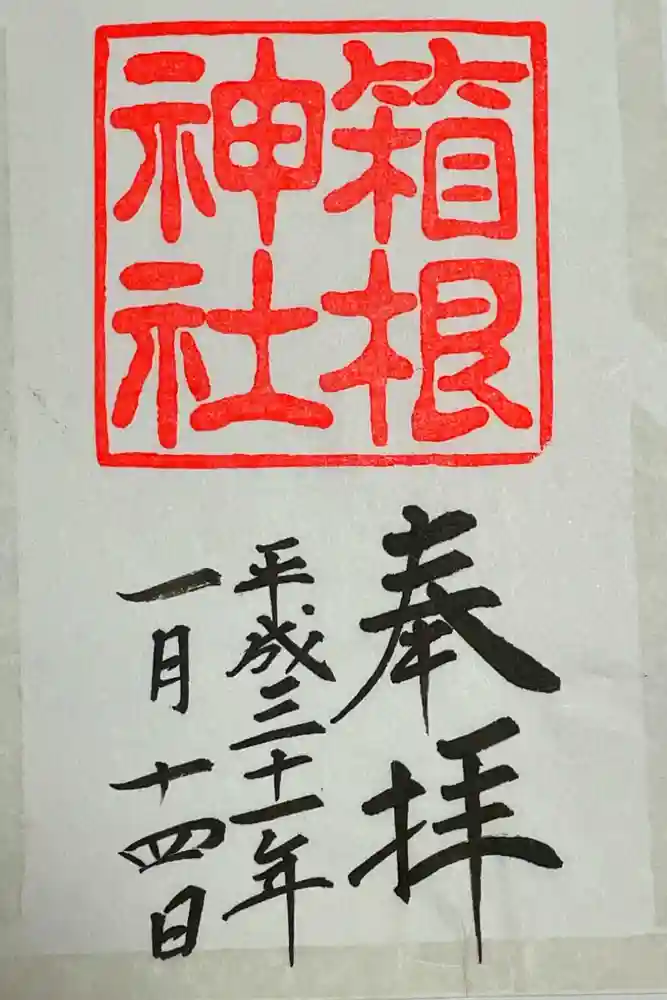 箱根
神社
奉拝
平成三十一年
一月十四日